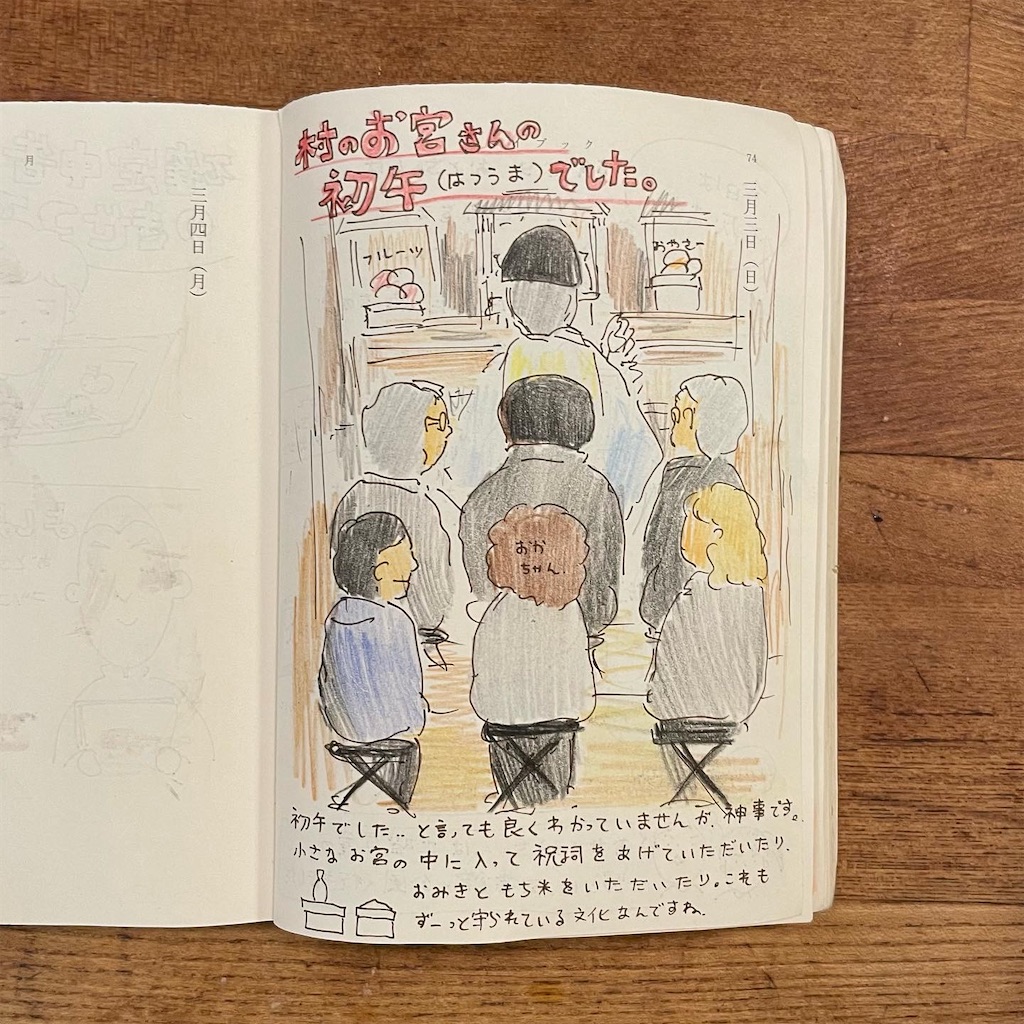 村のお宮さんの
イブック
初午(はつうま)でした。
74
三月三日(日)
フルーツ
おやさい
おか
ちゃん
初午でした‥と言っても良くわかっていませんが、神事です。
小さなお宮の中に入って祝詞をあげていただいたり、
おみきともち米をいただいたり。これも
ずーっと守られている文化なんですね。
月
三月四日(月)